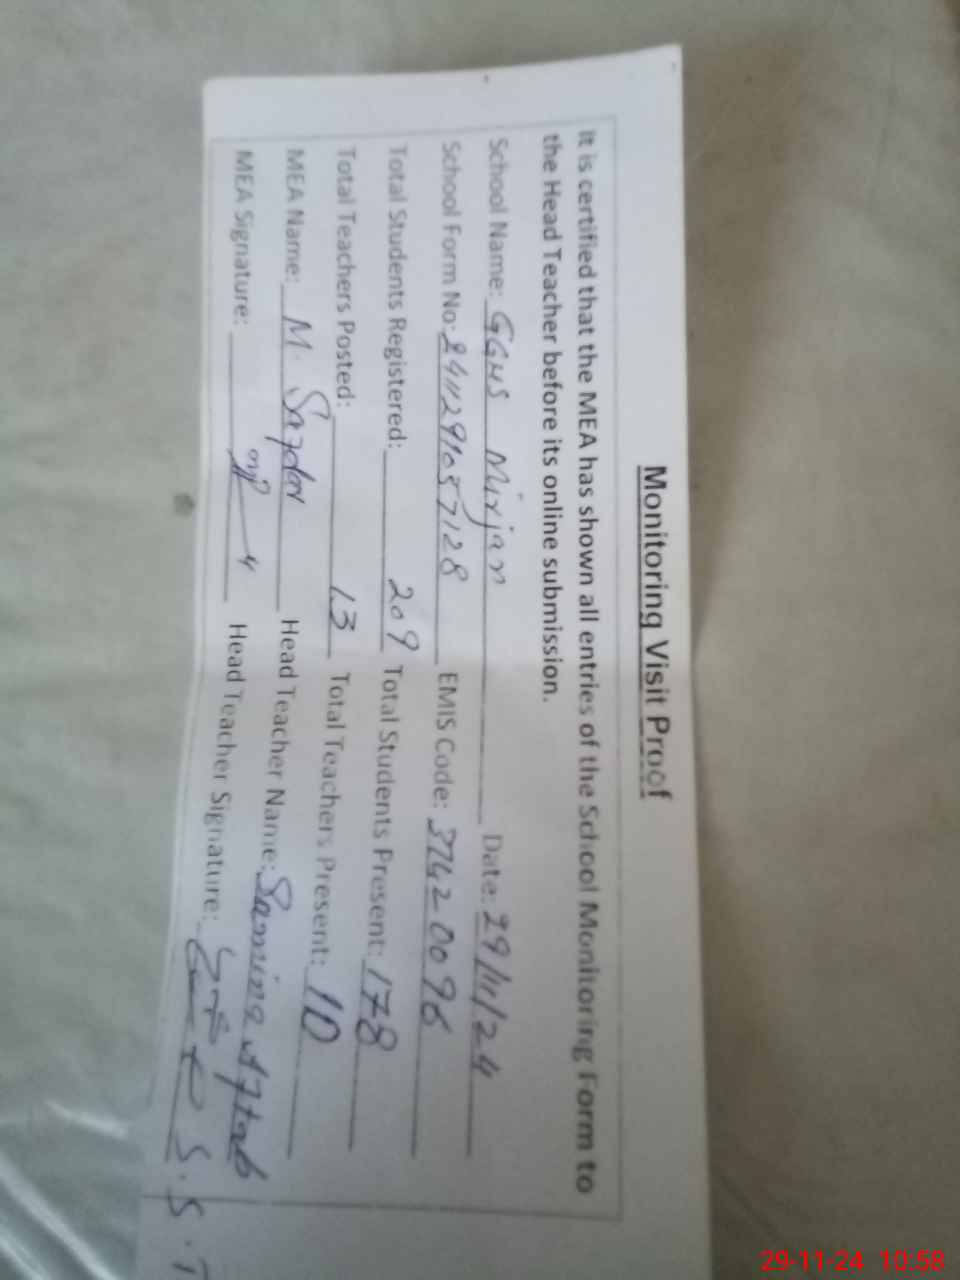 Monitoring Visit Proof
It is certified that the MEA has shown all entries of the School Monitoring Form to
the Head Teacher before its online submission.
School Name: GGHS Mirjan Date: 29/11/24
School Form No: 2411291057128 EMIS Code: 37420096
Total Students Registered: 209 Total Students Present: 178
Total Teachers Posted: 13 Total Teachers Present: 10
MEA Name: M. Safdar Head Teacher Name: Samina Aftab
MEA Signature: Head Teacher Signature: S.S.T
29-11-24 10:58